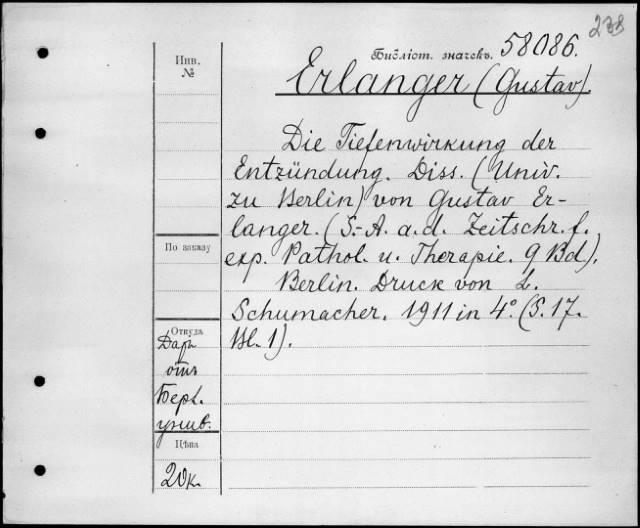 238
Библіот. значекъ. 58086.
Инв.
№
Erlanger (Gustav).
Die Tiefenwirkung der
Entzündung. Diss. (Univ.
zu Berlin) von Gustav Er-
langer. (S.-A. a. d. Zeitschr. f.
exp. Pathol. u. Therapie. 9 Bd.).
Berlin. Druck von L.
Schumacher. 1911 in 4°. (S. 17.
Bl. 1).
По заказу
Откуда
Даръ
отъ
Берл.
унив.
Цѣна
20к.